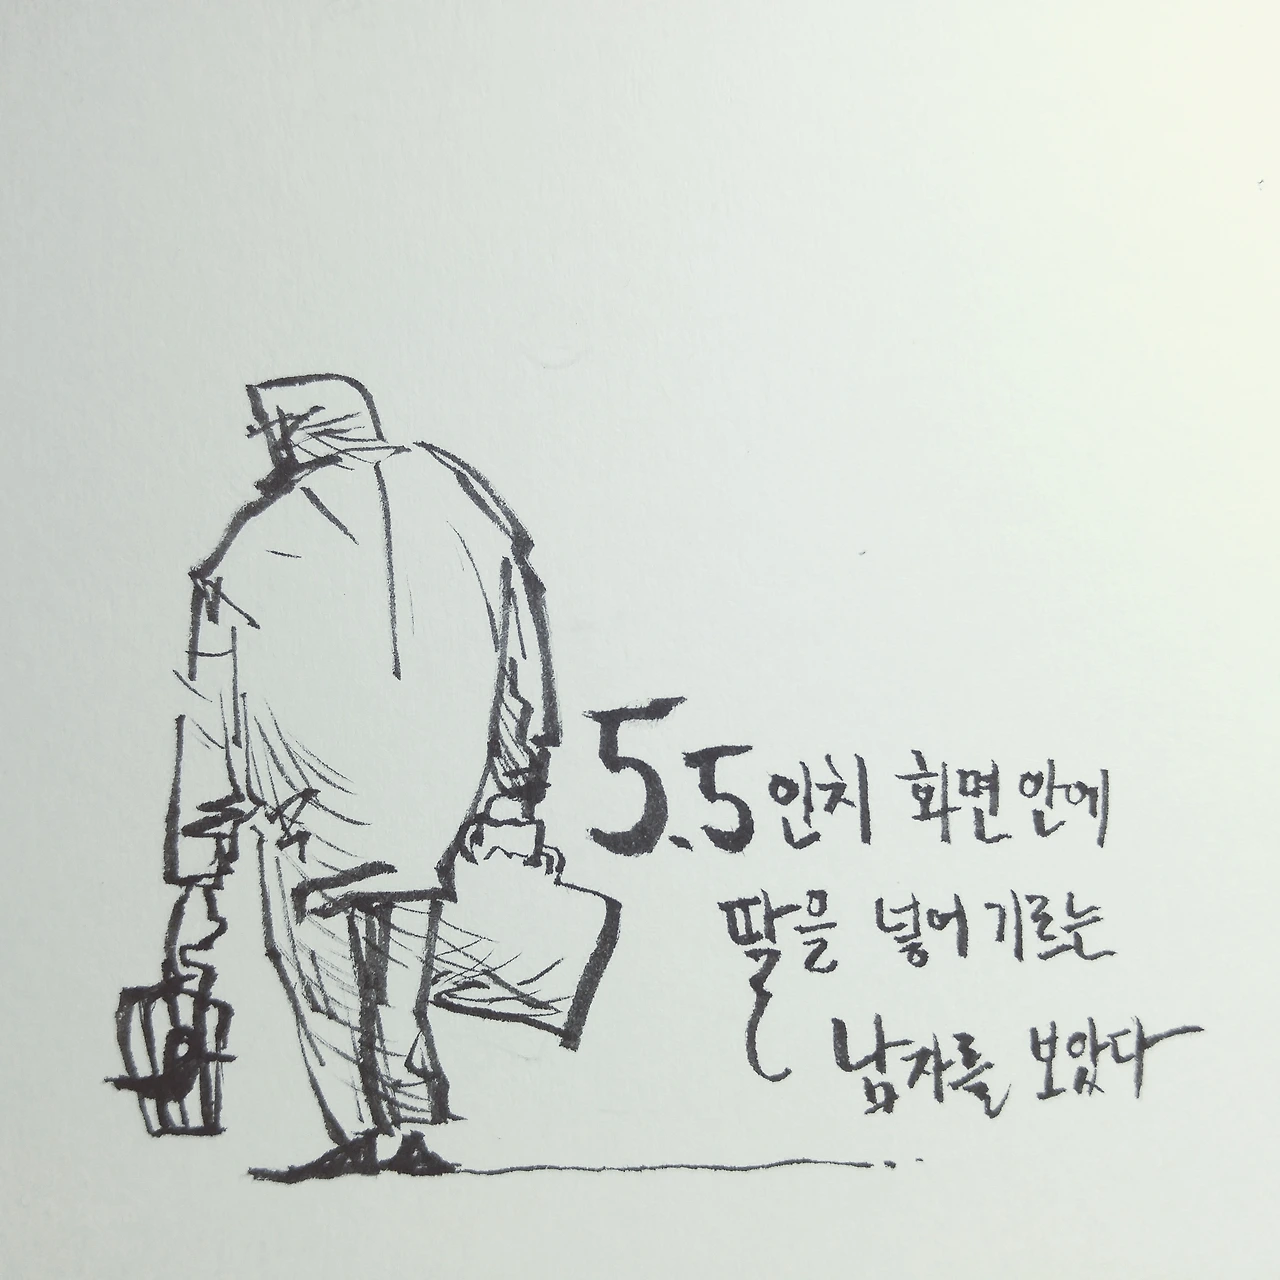 5.5인치 화면 안에
딸을 넣어 기르는
남자를 보았다